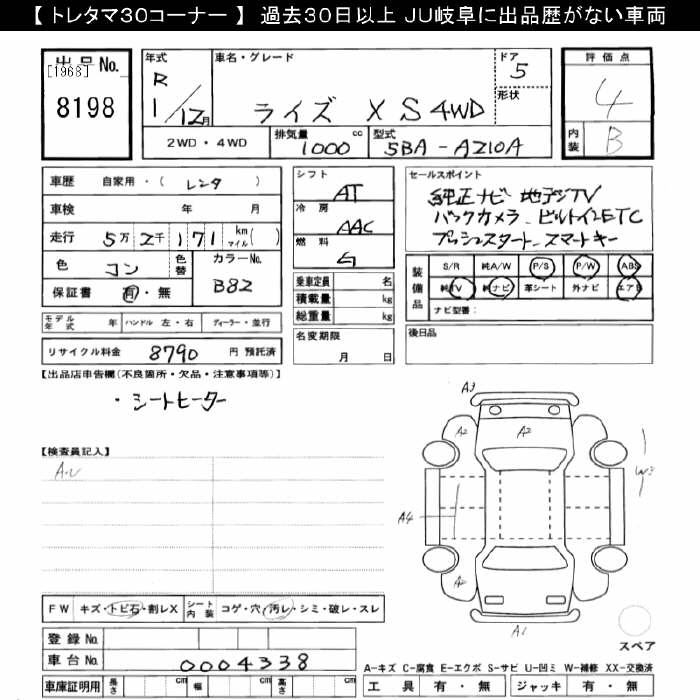 【 トレタマ30コーナー 】 過去30日以上 JU岐阜に出品歴がない車両
出品No.
[1968]
8198
年式
R 1/12月
2WD・4WD
車名・グレード
ライズ X S 4WD
ドア
5
形状
排気量
1000 cc
型式
5BA-A210A
評価点
4
内装
B
車歴 自家用・( レンタ )
車検 年 月
走行 5万 2千 171 km マイル( )
色 コン
色替
カラーNo.
B82
保証書 有・無
モデル年式 年 ハンドル 左・右 ディーラー・並行
リサイクル料金 8790 円 預託済
シフト
AT
冷房
AAC
燃料
乗車定員 名
積載量 kg
総重量 kg
名変期限
月 日
セールスポイント
純正ナビ 地デジTV
バックカメラ ビルトインETC
プッシュスタート スマートキー
装備品
S/R 純A/W P/S P/W ABS
純TV 純ナビ 革シート 外ナビ エアB
ナビ型番:
後日品
【出品店申告欄(不良箇所・欠品・注意事項等)】
・シートヒーター
【検査員記入】
A.U
A3
A2
A2
W3
A4
A2
A1
スペア
FW キズ・トビ石・割レX シート内装 コゲ・穴・汚レ・シミ・破レ・スレ
登録No.
車台No. 0004338
車庫証明用 長さ cm 幅 cm 高さ cm
A-キズ C-腐食 E-エクボ S-サビ U-凹ミ W-補修 XX-交換済
工具 有・無 ジャッキ 有・無